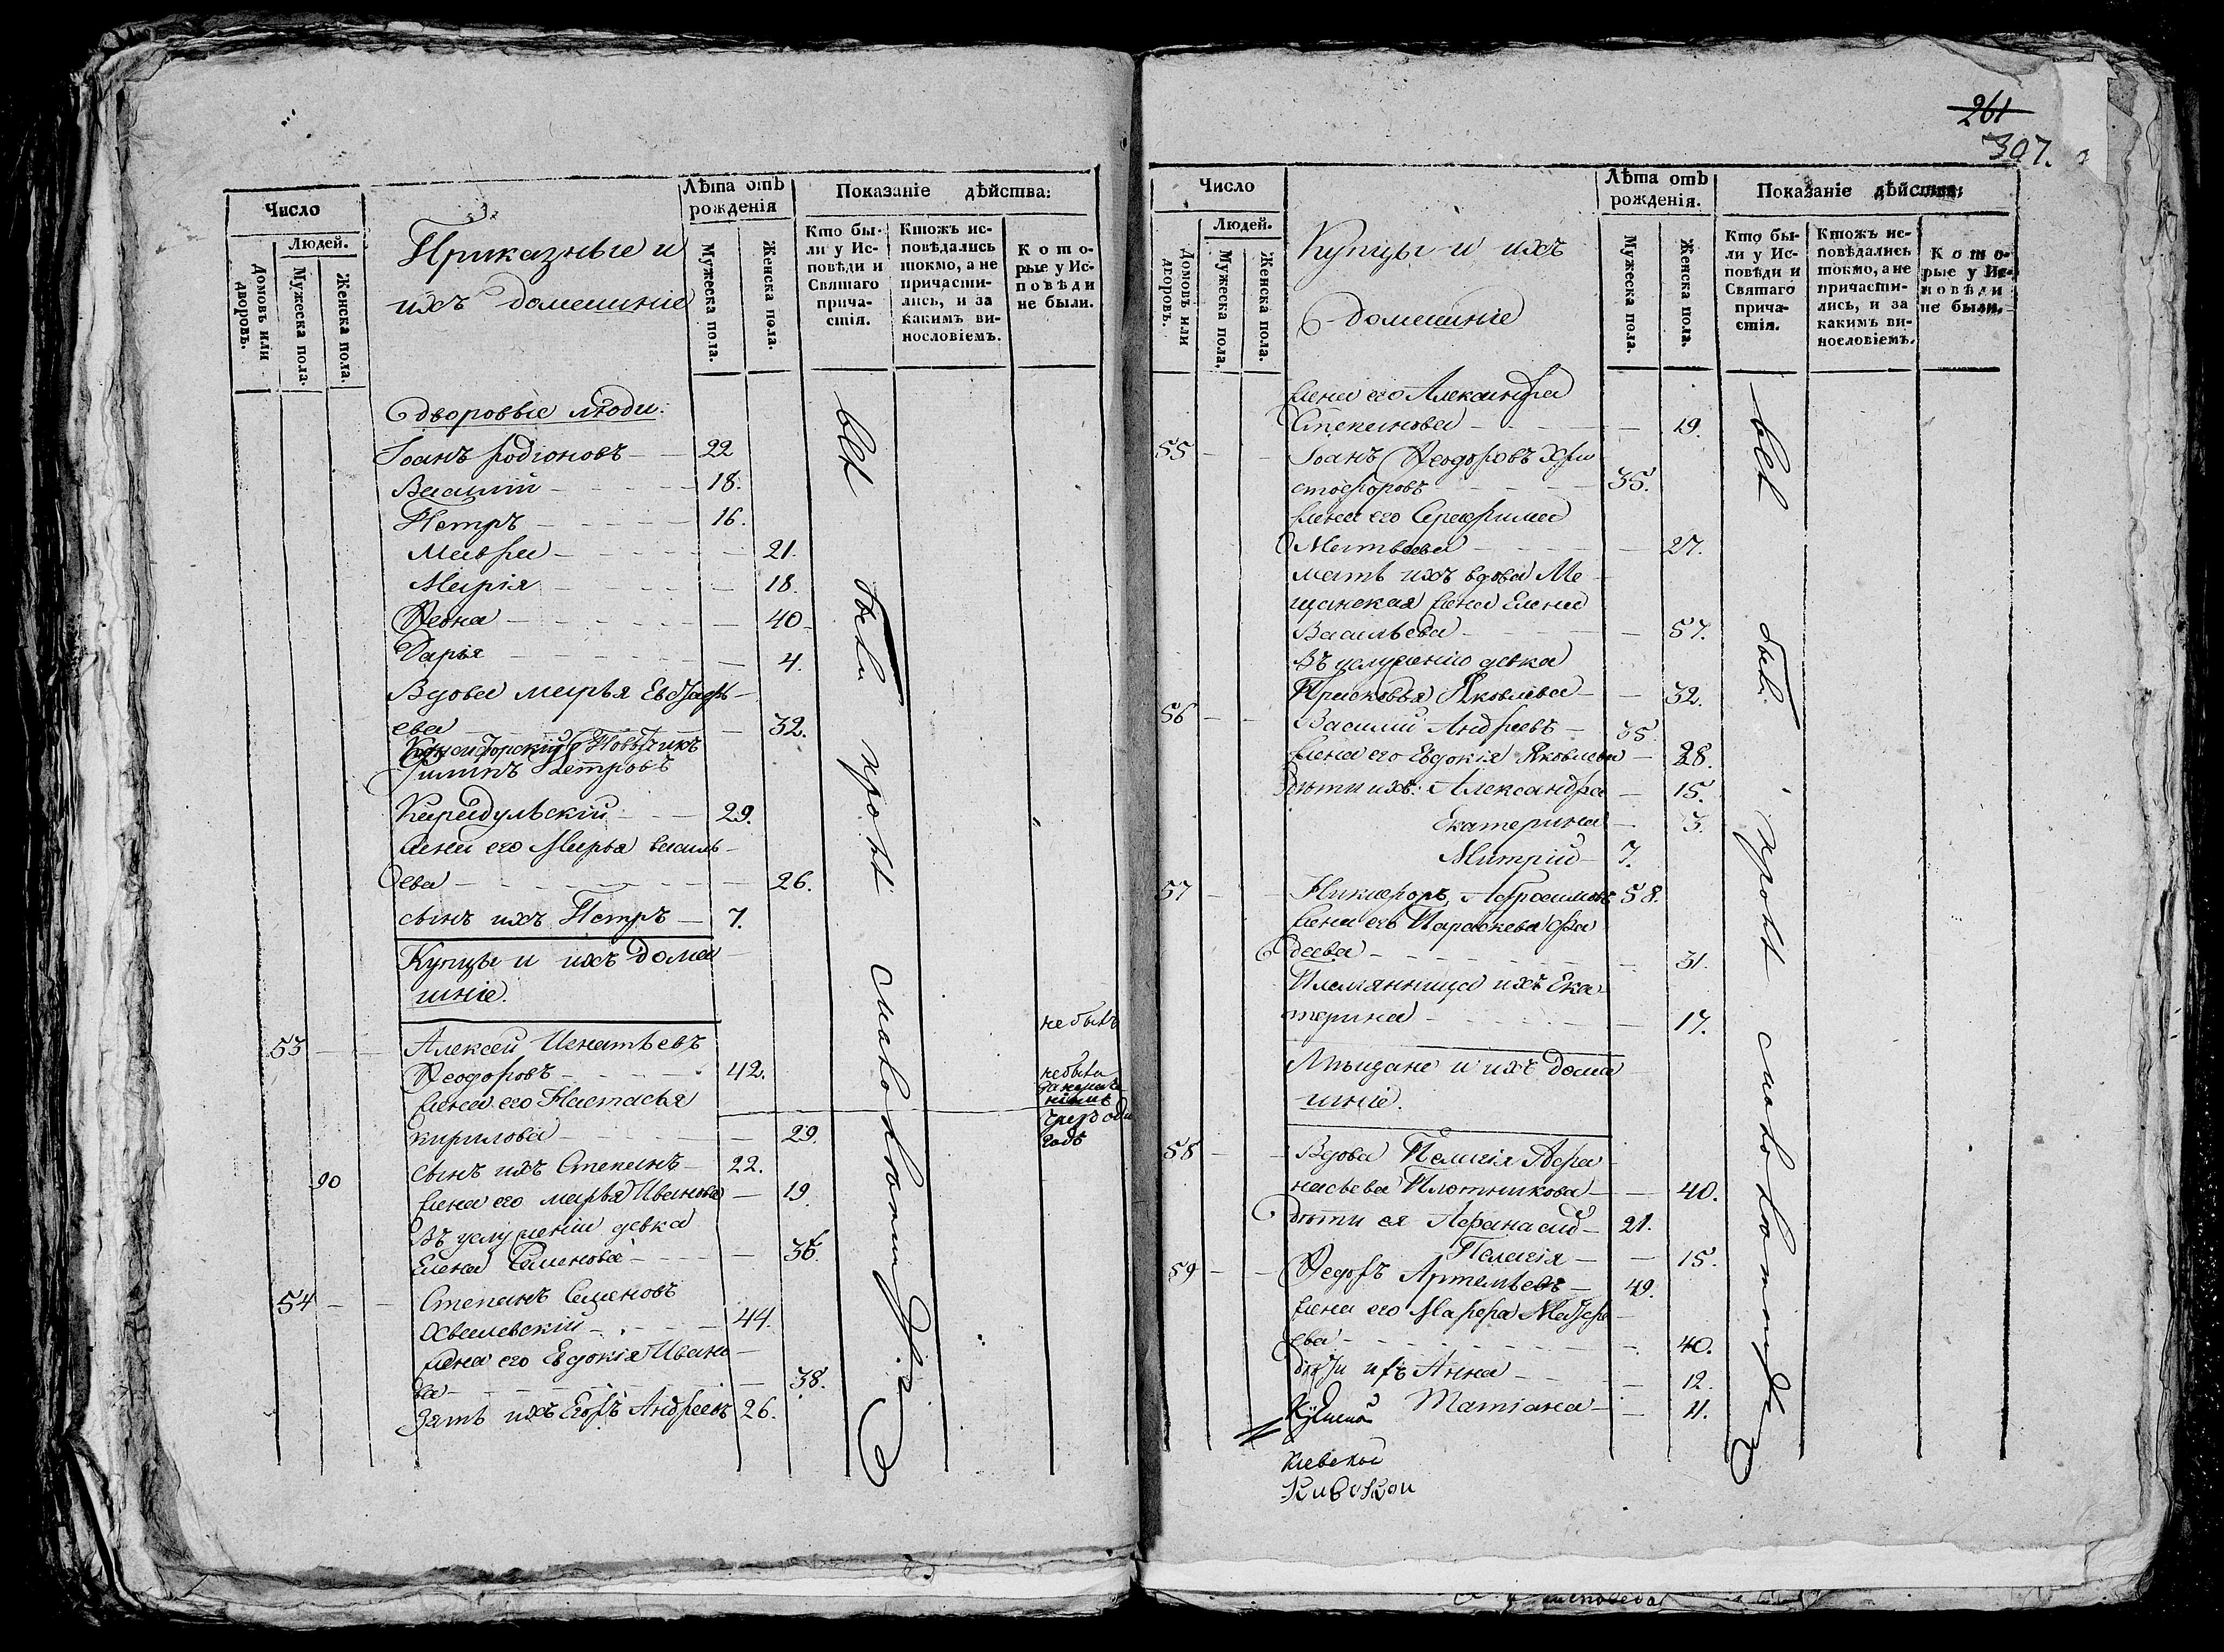 Число
Людей.
Домовъ или дворовъ.
Мужеска пола.
Женска пола.
Приказные и
ихъ домашніе
Лѣта отъ
рожденія
Мужеска пола.
Женска пола.
Показаніе дѣйства:
Кто бы-
ли у Ис-
повѣди и
Святаго
прича-
стія.
Ктожъ ис-
повѣдались
токмо, а не
причасти-
лись, и за
какимъ ви-
нословіемъ.
Кото-
рые у Ис-
повѣди
не были.
дворовые люди:
Іоанъ Родіоновъ - 22
Василій - 18.
Петръ - 16.
Мавра - 21.
Марія - 18.
Ѳеона - 40
Дарья - 4.
Вдова марья Евстафь-
ева - 32.
Повытчикъ
Филипъ Петровъ
29.
жена его Марья василь-
ева - 26.
сынъ ихъ Петръ - 7.
Купцы и ихъ дома-
шніе.
53 - Алексей Игнатьевъ
Ѳеодоровъ - 42.
жена его Настасья
кирилова - 29.
90 сынъ ихъ Степанъ - 22.
жена его марья Иванова - 19.
Въ услуженіи девка
Елена Семенова - 36.
54 - Степанъ Семеновъ
44.
жена его Евдокія Ивано-
ва - 38.
Зять ихъ Егоръ Андреевъ 26.
всѣ были кромѣ малолѣтныхъ
не былъ
не была
261
307.
Число
Людей.
Домовъ или дворовъ.
Мужеска пола.
Женска пола.
Купцы и ихъ
домашніе
Лѣта отъ
рожденія.
Мужеска пола.
Женска пола.
Показаніе дѣйства:
Кто бы-
ли у Ис-
повѣди и
Святаго
прича-
стія.
Ктожъ ис-
повѣдались
токмо, а не
причасти-
лись, и за
какимъ ви-
нословіемъ.
Кото-
рые у Ис-
повѣди
не были.
жена его Александра
Степанова - 19.
55 - Іоанъ Ѳеодоровъ Хри
стофоровъ - 35.
жена его Серафима
Матвеева - 27.
мать ихъ вдова Ме-
щанская жена Елена
Васильева - 57.
въ услуженіи девка
Прасковья Яковлева - 32.
56 - Василій Андреевъ - 35
жена его Евдокія Яковлева - 28.
дѣти ихъ: Александра - 15.
Екатерина - 3.
Митрій - 7.
57 - Никифоръ Абросимовъ 58.
жена его Параскева Фа
деева - 31.
Племянница ихъ Ека-
терина - 17.
Мѣщане и ихъ дома
шніе.
58 - Вдова Пелагія Афа
насьева Плотникова - 40.
дѣти ея Афанасій - 21.
Пелагія - 15.
59 - Ѳедоръ Артемьевъ - 49.
жена его Марфа
ева - 40.
дѣти ихъ Анна - 12.
Татіана - 4.
всѣ были кромѣ малолѣтныхъ